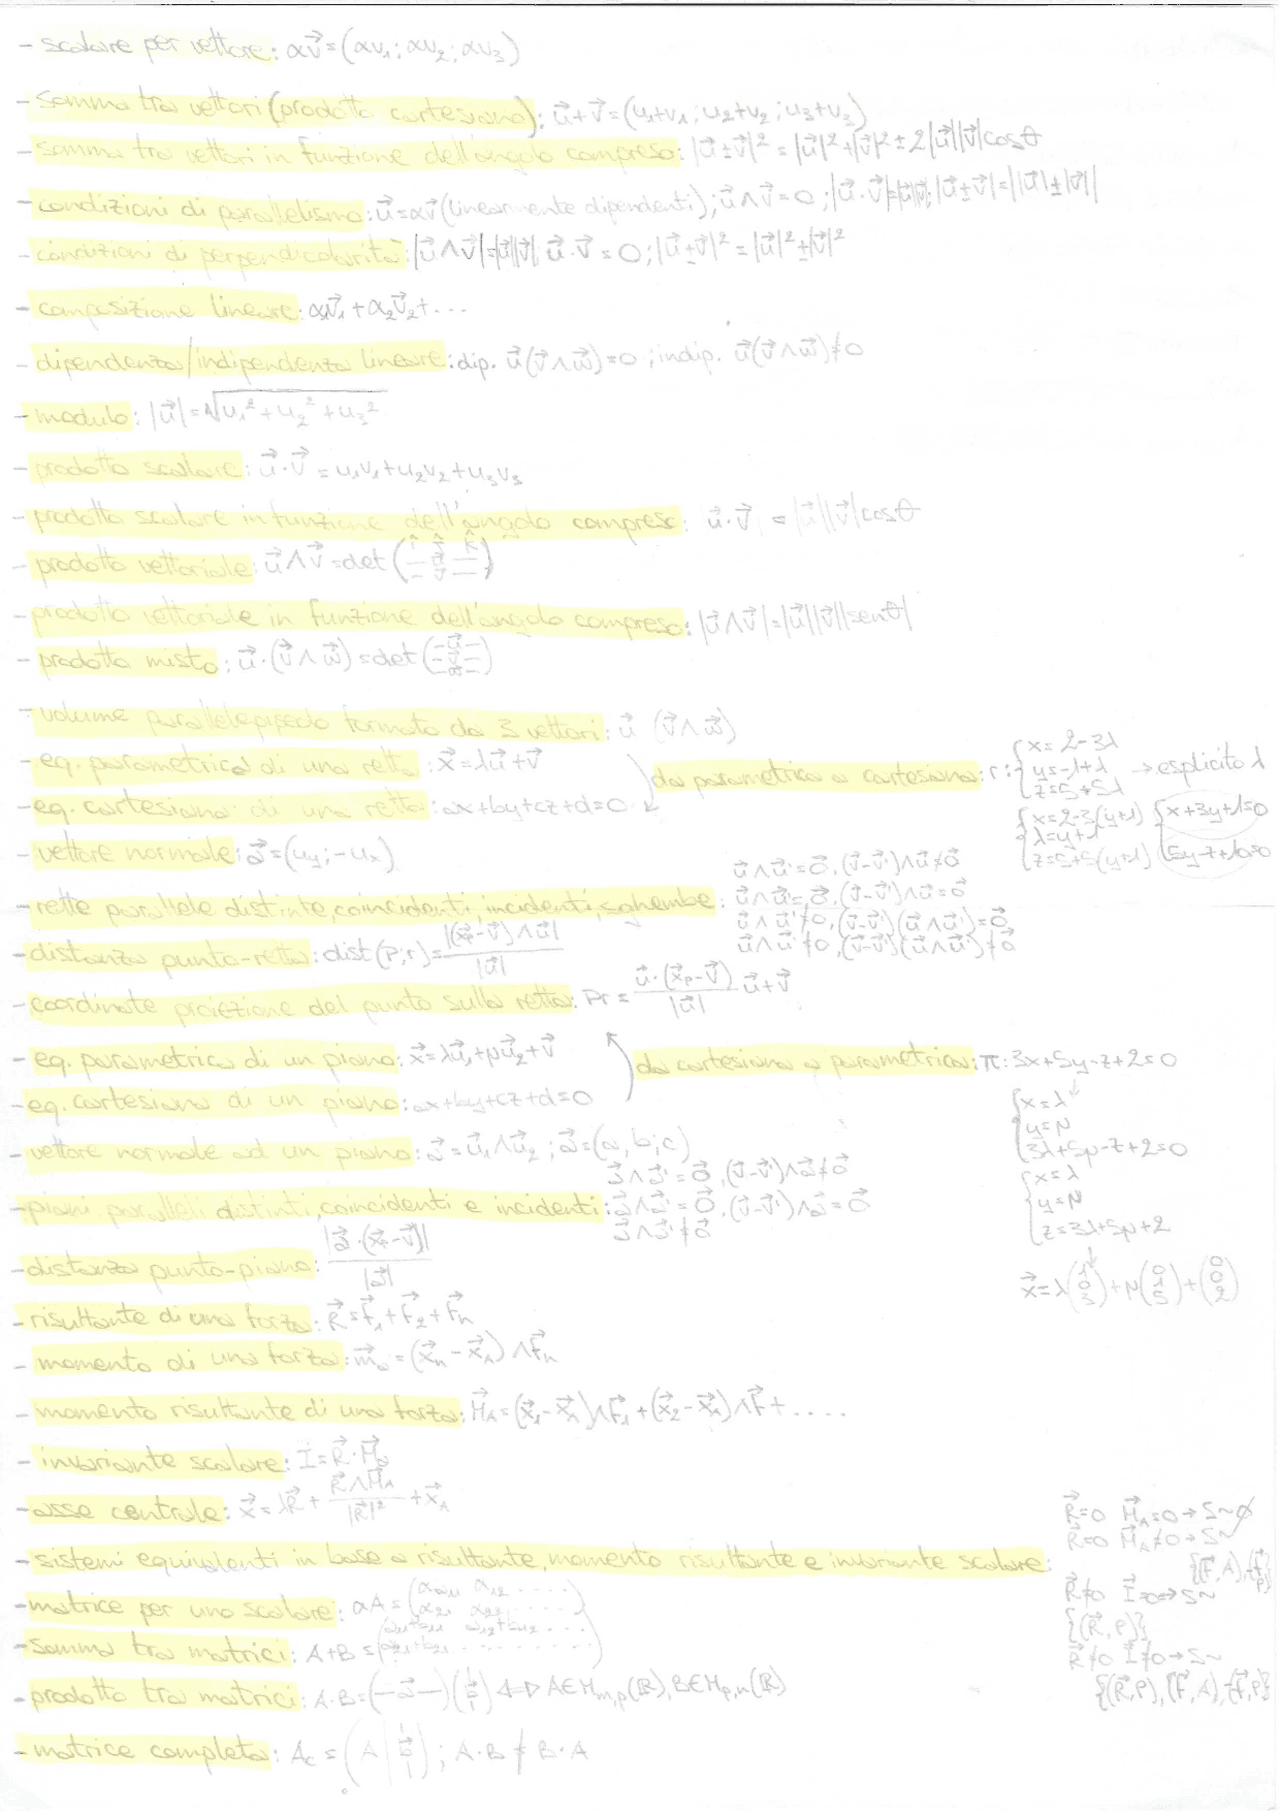 - scalare per vettore: αv⃗=(αv₁;αv₂;αv₃)
- somma tra vettori (prodotto cartesiano): u⃗+v⃗=(u₁+v₁;u₂+v₂;u₃+v₃)
- somma tra vettori in funzione dell'angolo compreso: |u⃗±v⃗|²=|u⃗|²+|v⃗|²±2|u⃗||v⃗|cosθ
- condizioni di parallelismo: u⃗=αv⃗ (linearmente dipendenti); u⃗∧v⃗=0; |u⃗·v⃗|=|u⃗||v⃗|; |u⃗±v⃗|=||u⃗|±|v⃗||
- condizioni di perpendicolarità: |u⃗∧v⃗|=|u⃗||v⃗| u⃗·v⃗=0; |u⃗±v⃗|²=|u⃗|²±|v⃗|²
- composizione lineare: α₁v⃗₁+α₂v⃗₂+...
- dipendenza/indipendenza lineare: dip. u⃗(v⃗∧w⃗)=0; indip. u⃗(v⃗∧w⃗)≠0
- modulo: |u⃗|=√u₁²+u₂²+u₃²
- prodotto scalare: u⃗·v⃗=u₁v₁+u₂v₂+u₃v₃
- prodotto scalare in funzione dell'angolo compreso: u⃗·v⃗=|u⃗||v⃗|cosθ
- prodotto vettoriale: u⃗∧v⃗=det(î ĵ k̂ —u⃗— —v⃗—)
- prodotto vettoriale in funzione dell'angolo compreso: |u⃗∧v⃗|=|u⃗||v⃗||senθ|
- prodotto misto: u⃗·(v⃗∧w⃗)=det(—u⃗— —v⃗— —w⃗—)
- volume parallelepipedo formato da 3 vettori: u⃗ (v⃗∧w⃗)
- eq. parametrica di una retta: x⃗=λu⃗+v⃗
da parametrica a cartesiana: r: {x=2-3λ
y=-1+λ → esplicito λ
z=5+5λ
- eq. cartesiana di una retta: ax+by+cz+d=0
{x=2-3(y+1) {x+3y+1=0
λ=y+1
z=5+5(y+1) 5y-z+10=0
- vettore normale: a⃗=(uy;-ux)
- rette parallele distinte, coincidenti, incidenti, sghembe:
u⃗∧u⃗'=0⃗, (v⃗-v⃗')∧u⃗≠0⃗
u⃗∧u⃗'=0⃗, (v⃗-v⃗')∧u⃗=0⃗
u⃗∧u⃗'≠0, (v⃗-v⃗')(u⃗∧u⃗')=0⃗
u⃗∧u⃗'≠0, (v⃗-v⃗')(u⃗∧u⃗')≠0⃗
- distanza punto-retta: dist(P;r)=|(x⃗p-v⃗)∧u⃗|/|u⃗|
- coordinate proiezione del punto sulla retta: Pr=u⃗·(x⃗p-v⃗)/|u⃗| u⃗+v⃗
- eq. parametrica di un piano: x⃗=λu⃗₁+μu⃗₂+v⃗
da cartesiana a parametrica: π: 3x+5y-z+2=0
- eq. cartesiana di un piano: ax+by+cz+d=0
{x=λ
y=μ
3λ+5μ-z+2=0
- vettore normale ad un piano: a⃗=u⃗₁∧u⃗₂; a⃗=(a,b;c)
{x=λ
y=μ
z=3λ+5μ+2
- piani paralleli distinti, coincidenti e incidenti:
a⃗∧a⃗'=0⃗, (v⃗-v⃗')∧a⃗≠0⃗
a⃗∧a⃗'=0⃗, (v⃗-v⃗')∧a⃗=0⃗
a⃗∧a⃗'≠0⃗
x⃗=λ(1 0 3)+μ(0 1 5)+(0 0 2)
- distanza punto-piano: |a⃗·(x⃗p-v⃗)|/|a⃗|
- risultante di una forza: R⃗=F⃗₁+F⃗₂+F⃗n
- momento di una forza: m⃗a=(x⃗n-x⃗A)∧F⃗n
- momento risultante di una forza: M⃗A=(x⃗₁-x⃗A)∧F⃗₁+(x⃗₂-x⃗A)∧F⃗+....
- invariante scalare: I=R⃗·M⃗a
- asse centrale: x⃗=λR⃗+R⃗∧M⃗A/|R⃗|²+x⃗A
- sistemi equivalenti in base a risultante, momento risultante e invariante scalare:
R⃗=0 M⃗A=0→S~∅
R⃗=0 M⃗A≠0→S~
{(F⃗,A),(-F⃗,P)}
R⃗≠0 I=0→S~
{(R⃗,P)}
R⃗≠0 I≠0→S~
{(R⃗,P),(F⃗,A),(-F⃗,P)}
- matrice per uno scalare: αA=(αa₁₁ αa₁₂ .... αa₂₁ αa₂₂ ....)
- somma tra matrici: A+B=(a₁₁+b₁₁ a₁₂+b₁₂ ... a₂₁+b₂₁ ......)
- prodotto tra matrici: A·B=(—a⃗—)(b⃗) ⇔ A∈Mm,p(ℝ), B∈Mp,n(ℝ)
- matrice completa: Ac=(A|b⃗); A·B≠B·A